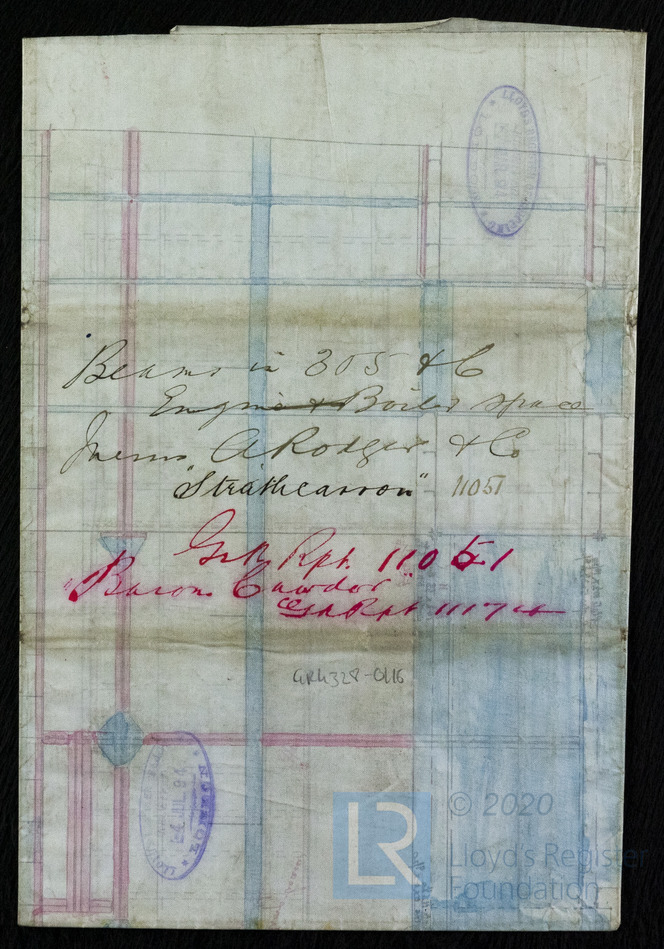 Beams in 305 & C
Engine & Boiler space
Messrs A Rodger & Co
"Strathcarron" 11051
GrK Rpt. 11051
"Baron Cawdor"
GrkRpt 11174
GRK328-0116
24 JUL 94
LONDON
LR
© 2020
Lloyd's Register
Foundation